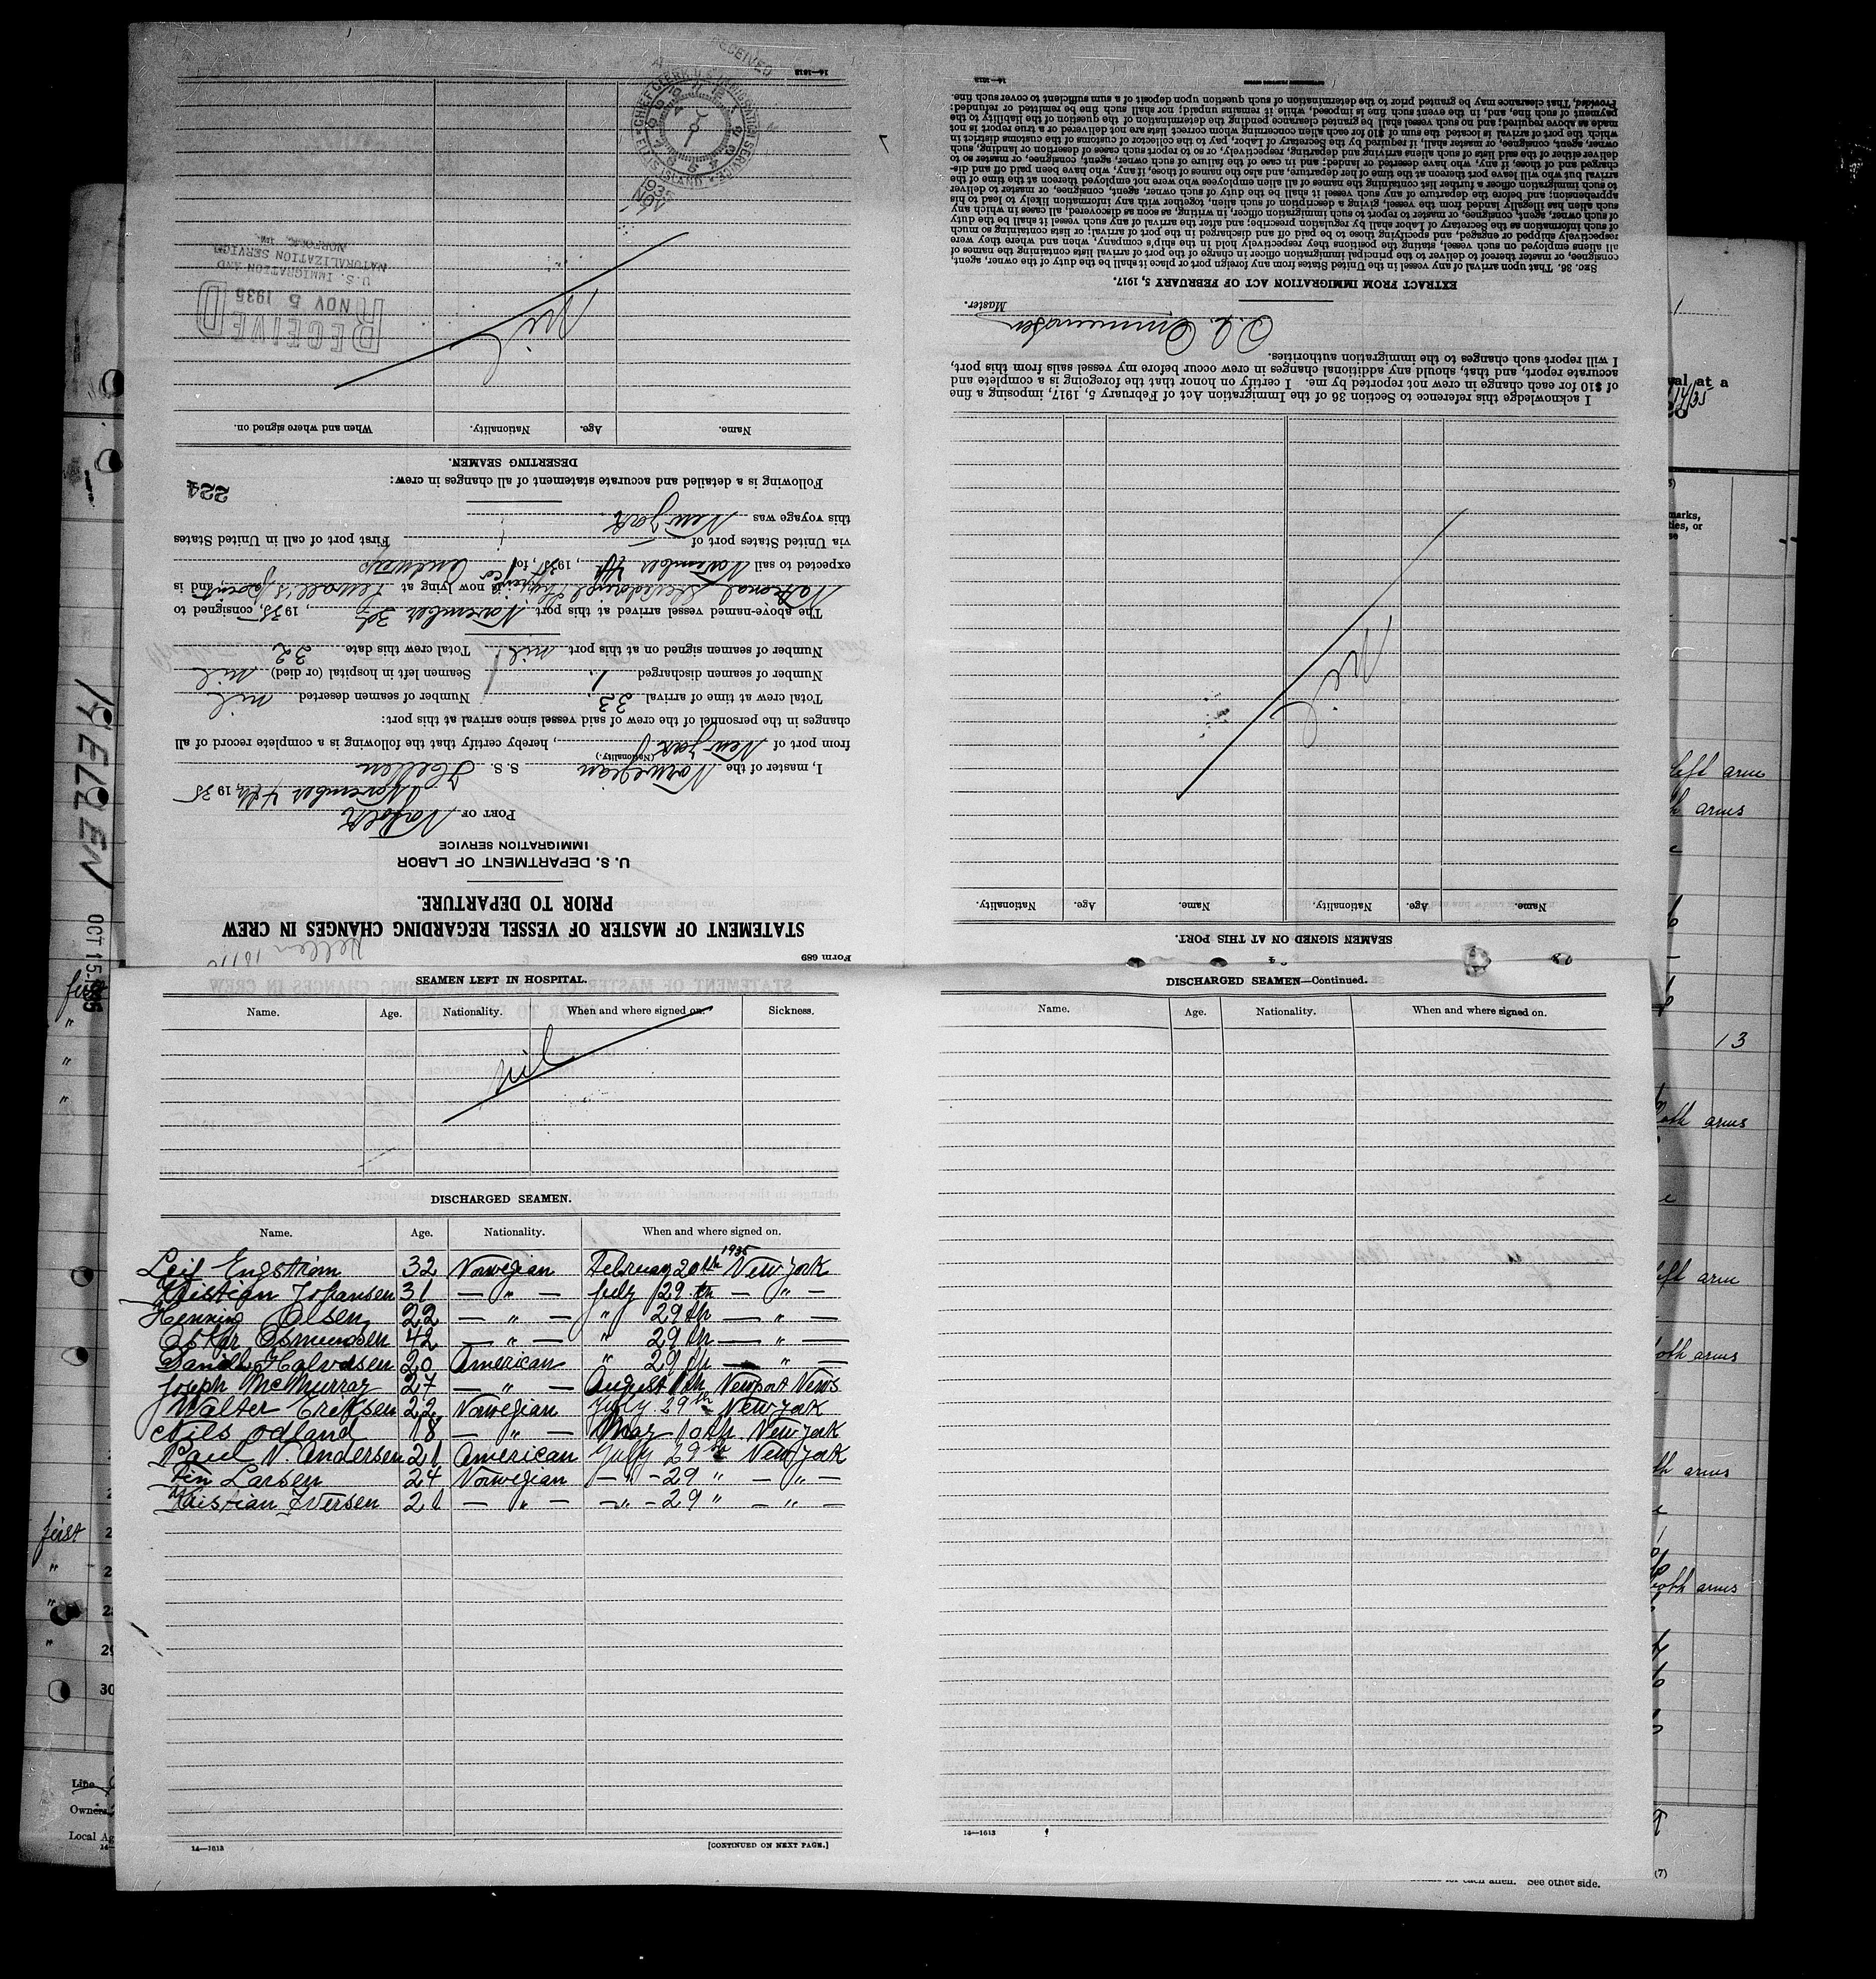 Form 689
Hellen
STATEMENT OF MASTER OF VESSEL REGARDING CHANGES IN CREW
PRIOR TO DEPARTURE.
U. S. DEPARTMENT OF LABOR
IMMIGRATION SERVICE
PORT OF Norfolk
November 4th, 1935
I, master of the Norwegian S. S. Hellen
(Nationality.)
from port of New York, hereby certify that the following is a complete record of all
changes in the personnel of the crew of said vessel since arrival at this port:
Total crew at time of arrival 33 Number of seamen deserted nil
Number of seamen discharged 1 Seamen left in hospital (or died) nil
Number of seamen signed on at this port nil Total crew this date 32
The above-named vessel arrived at this port November 3d, 1935, consigned to
National is now lying at Sewall's point, and is
expected to sail November 4th, 1935, for
via United States port of First port of call in United States
this voyage was New York
Following is a detailed and accurate statement of all changes in crew:
224
DESERTING SEAMEN.
Name. Age. Nationality. When and where signed on.
nil
RECEIVED
NOV 5 1935
U. S. IMMIGRATION AND
NATURALIZATION SERVICE
NORFOLK, VA.
RECEIVED
CHIEF CLERK U.S. IMMIGRATION SERVICE
ELLIS ISLAND
1935 NOV
14—1613
SEAMEN SIGNED ON AT THIS PORT.
Name. Age. Nationality. Name. Age. Nationality.
Nil
I acknowledge this reference to Section 36 of the Immigration Act of February 5, 1917, imposing a fine
of $10 for each change in crew not reported by me. I certify on honor that the foregoing is a complete and
accurate report, and that, should any additional changes in crew occur before my vessel sails from this port,
I will report such changes to the immigration authorities.
Master.
EXTRACT FROM IMMIGRATION ACT OF FEBRUARY 5, 1917.
Sec. 36. That upon arrival of any vessel in the United States from any foreign port or place it shall be the duty of the owner, agent,
consignee, or master thereof to deliver to the principal immigration officer in charge of the port of arrival lists containing the names of
all aliens employed on such vessel, stating the positions they respectively hold in the ship's company, when and where they were
respectively shipped or engaged, and specifying those to be paid off and discharged in the port of arrival; or lists containing so much
of such information as the Secretary of Labor shall by regulation prescribe; and after the arrival of any such vessel it shall be the duty
of such owner, agent, consignee, or master to report to such immigration officer, in writing, as soon as discovered, all cases in which any
such alien has illegally landed from the vessel, giving a description of such alien, together with any information likely to lead to his
apprehension; and before the departure of any such vessel it shall be the duty of such owner, agent, consignee, or master to deliver
to such immigration officer a further list containing the names of all alien employees who were not employed thereon at the time of the
arrival but who will leave port thereon at the time of her departure, and also the names of those, if any, who have been paid off and dis-
charged and of those, if any, who have deserted or landed; and in case of the failure of such owner, agent, consignee, or master so to
deliver either of the said lists of such aliens arriving and departing, respectively, or so to report such cases of desertion or landing, such
owner, agent, consignee, or master shall, if required by the Secretary of Labor, pay to the collector of customs of the customs district in
which the port of arrival is located the sum of $10 for each alien concerning whom correct lists are not delivered or a true report is not
made as above required; and no such vessel shall be granted clearance pending the determination of the question of the liability to the
payment of such fine, and, in the event such fine is imposed, while it remains unpaid; nor shall such fine be remitted or refunded:
Provided, That clearance may be granted prior to the determination of such question upon deposit of a sum sufficient to cover such fine.
14—1613
SEAMEN LEFT IN HOSPITAL.
Name. Age. Nationality. When and where signed on. Sickness.
nil
DISCHARGED SEAMEN.
Name. Age. Nationality. When and where signed on.
Leif Engström 32 Norwegian February 20th 1935 New York
Kristian Johansen 31 — " — July 29th — " —
Henning Olsen 22 — " — " 29th — " —
Oskar Osmundsen 42 — " — " 29th — " —
Daniel Halvorsen 20 American " 29th — " —
Joseph McMurray 27 — " — August Newport News
Walter Eriksen 22 Norwegian July 29th New York
Nils Odland 18 — " — May 10th New York
Paul N. Andersen 21 American July 29th New York
Fin Larsen 24 Norwegian — " — 29 " — " —
Kristian Iversen 21 — " — — " — 29 " — " —
14—1613 [CONTINUED ON NEXT PAGE.]
DISCHARGED SEAMEN—Continued.
Name. Age. Nationality. When and where signed on.
14—1613
HELLEN
OCT 15 1935
first
first
29
30
Line
Owners
Local Ag
left arm
arms
13
both arms
left arm
both arms
arms
both arms
See other side.
(7)